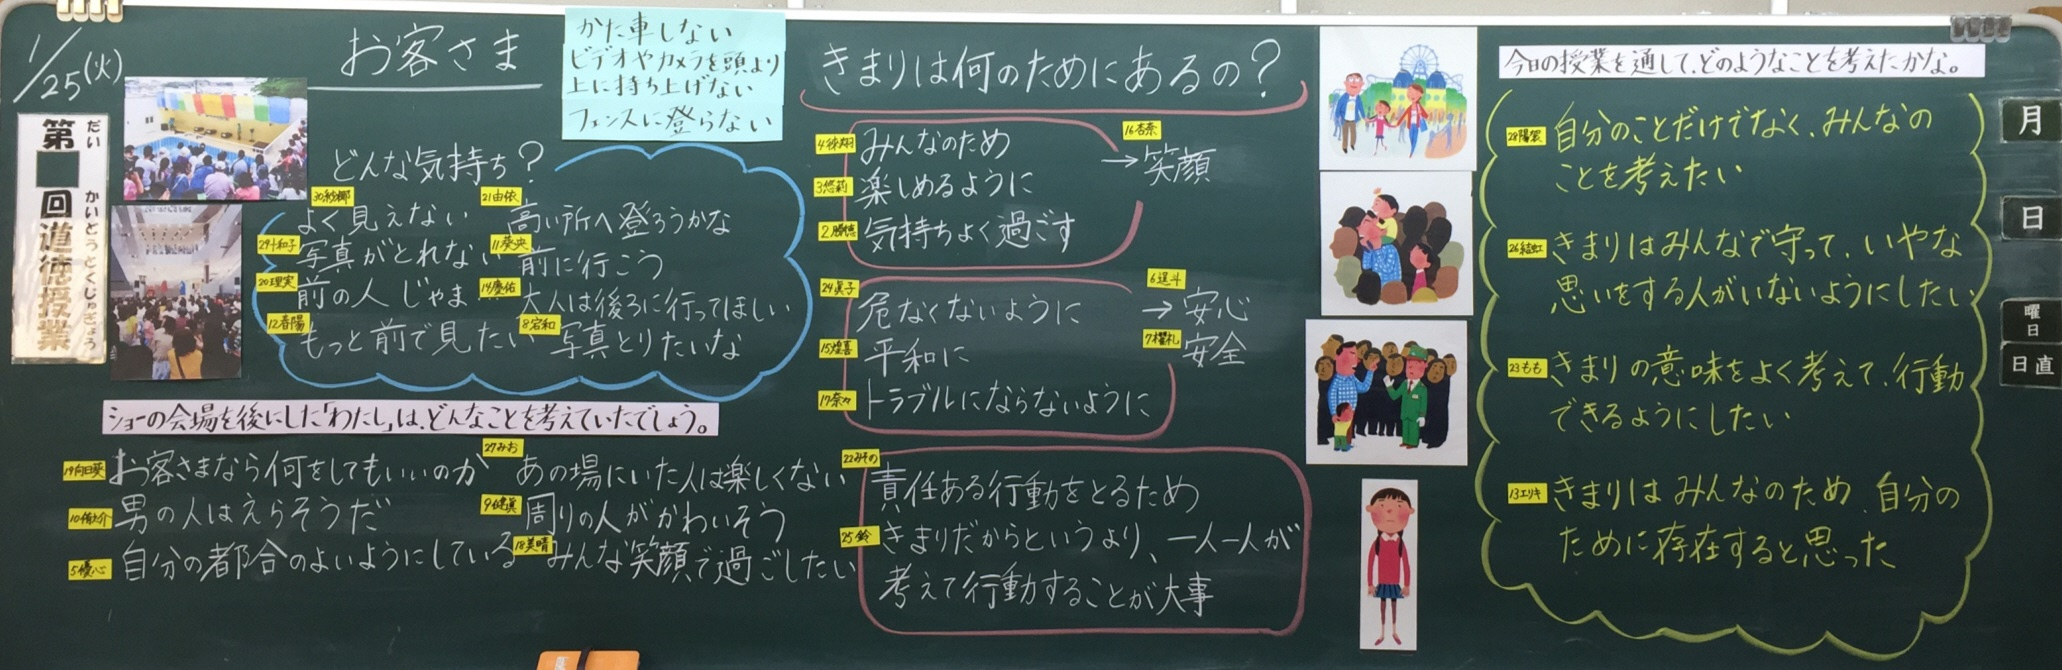 1/25(火)
第 回道徳授業
だい かいどうとくじゅぎょう
お客さま
かた車しない
ビデオやカメラを頭より
上に持ち上げない
フェンスに登らない
どんな気持ち?
30紗椰
よく見えない
29十和子
写真がとれない
20理実
前の人じゃま
12春陽
もっと前で見たい
21由依
高い所へ登ろうかな
11葵央
前に行こう
14慶佑
大人は後ろに行ってほしい
8宕和
写真とりたいな
ショーの会場を後にした「わたし」は、どんなことを考えていたでしょう。
19向日葵
お客さまなら何をしてもいいのか
10楡介
男の人はえらそうだ
5優心
自分の都合のよいようにしている
27みお
あの場にいた人は楽しくない
9健眞
周りの人がかわいそう
18美晴
みんな笑顔で過ごしたい
きまりは何のためにあるの?
みんなのため
3悠莉
楽しめるように
気持ちよく過ごす
16杏奈
→笑顔
24眞子
危なくないように
15煌喜
平和に
17奈々
トラブルにならないように
6遥斗
→安心
安全
22みその
責任ある行動をとるため
25鈴
きまりだからというより、一人一人が
考えて行動することが大事
今日の授業を通して、どのようなことを考えたかな。
自分のことだけでなく、みんなの
ことを考えたい
26結虹
きまりはみんなで守って、いやな
思いをする人がいないようにしたい
23もも
きまりの意味をよく考えて、行動
できるようにしたい
13エリキ
きまりはみんなのため、自分の
ために存在すると思った
月
日
曜日
日直